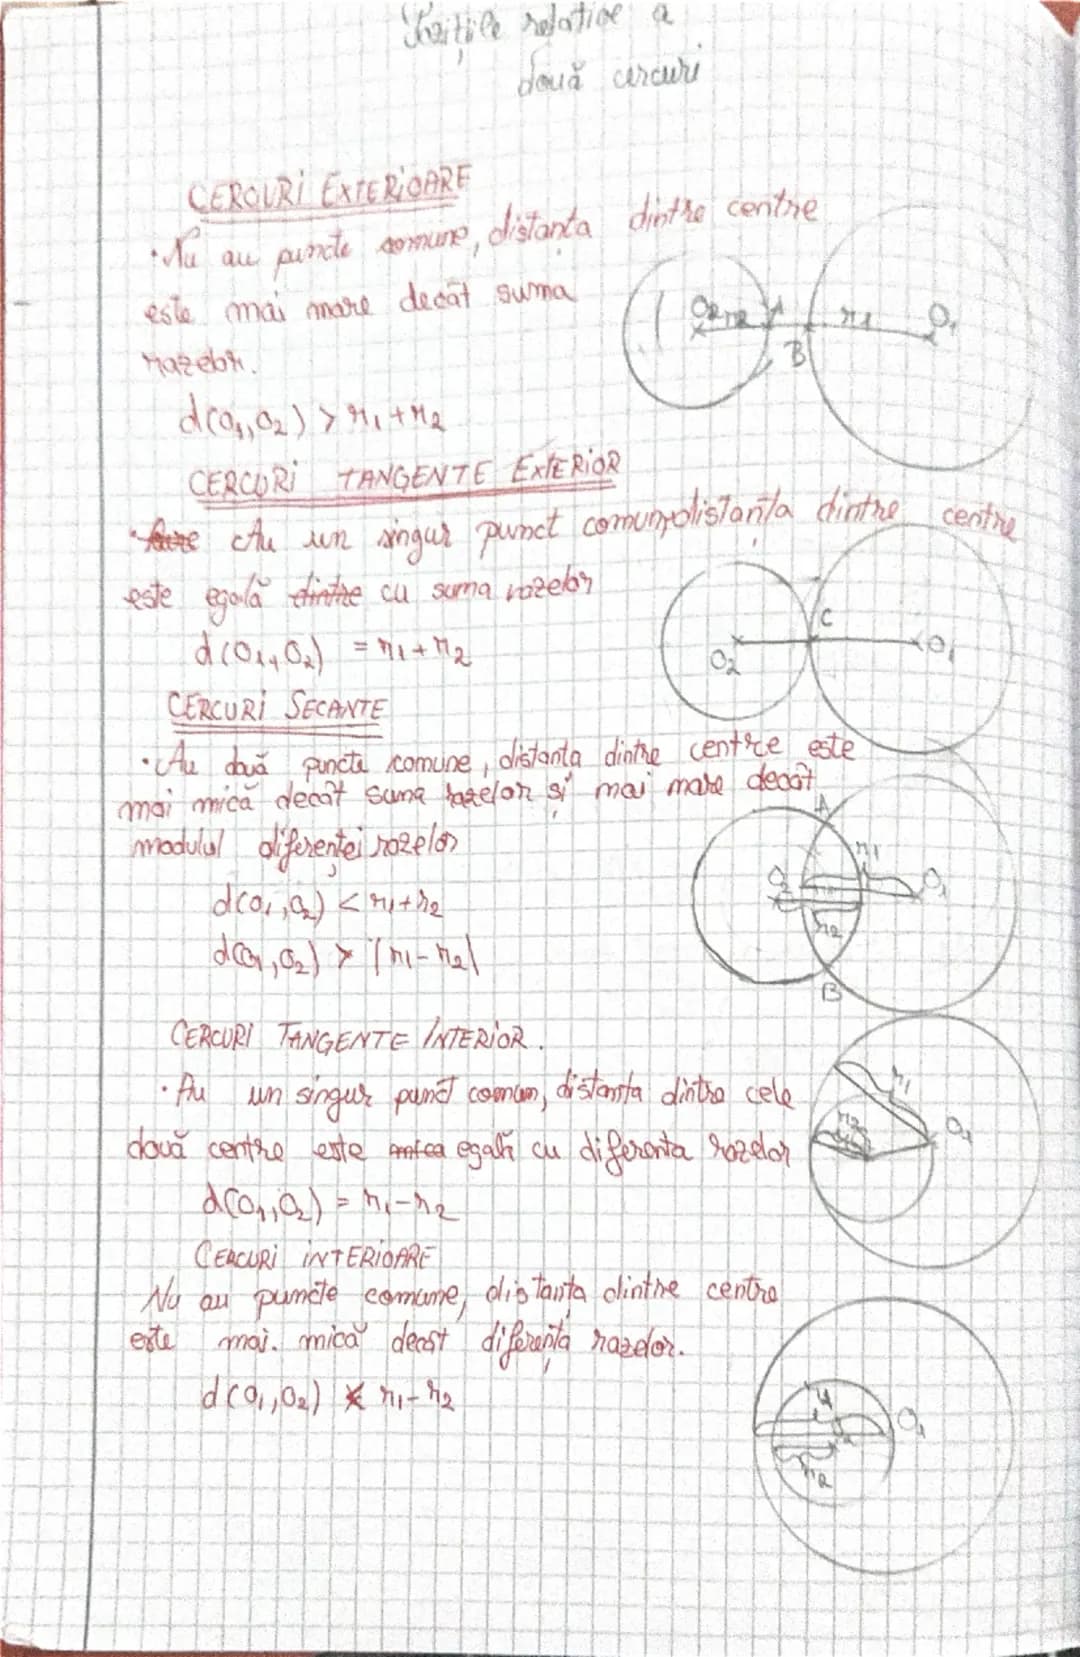 Pozițiile relative a
două cercuri
CERCURI EXTERIOARE
• Nu au puncte comune, distanța dintre centre
este mai mare decât suma
razelor.
O2 r2 A B r1 O1
d(O1,O2) > r1+r2
CERCURI TANGENTE EXTERIOR
• Au un singur punct comun, distanța dintre centre
este egală dintre cu suma razelor
O2 C O1
d(O1,O2) = r1+r2
CERCURI SECANTE
• Au două puncte comune, distanța dintre centre este
mai mică decât suma razelor și mai mare decât
modulul diferenței razelor
A O2 r1 O1 r2 B
d(O1,O2) < r1+r2
d(O1,O2) > |r1-r2|
CERCURI TANGENTE INTERIOR.
• Au un singur punct comun, distanța dintre cele
două centre este egală cu diferenta razelor
r1 r2 O1
d(O1,O2) = r1-r2
CERCURI INTERIOARE
Nu au puncte comune, distanța dintre centre
este mai. mică decât diferența razelor.
d(O1,O2) < r1-r2
O1
r2